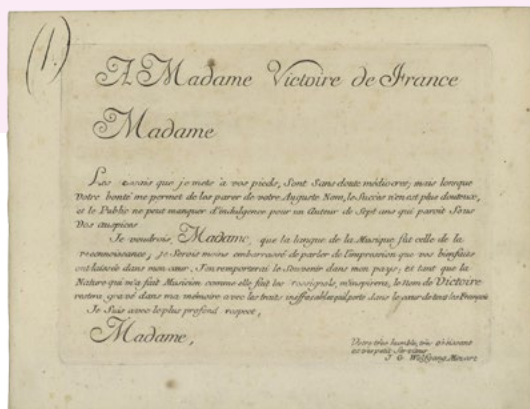 (1.)
A Madame Victoire de France
Madame
Les essais que je mets à vos pieds, sont sans doute médiocres; mais lorsque
Votre bonté me permet de les parer de votre Auguste Nom, le succès n'en est plus douteux,
et le Public ne peut manquer d'indulgence pour un Auteur de Sept ans qui paroit Sous
Vos auspices
Je voudrois, Madame, que la langue de la Musique fut celle de la
reconnoissance; je serois moins embarrassé de parler de l'impression que vos bienfaits
ont laissée dans mon cœur. J'en remporterai le Souvenir dans mon pays; et tant que la
Nature qui m'a fait Musicien comme elle fait les rossignols, m'inspirera, le Nom de Victoire
restera gravé dans ma mémoire avec les traits ineffaçables qu'il porte dans le cœur de tous les François
Je Suis avec le plus profond respect,
Madame,
Votre très humble, très obéissant
et très petit Serviteur
J. G. Wolfgang Mozart